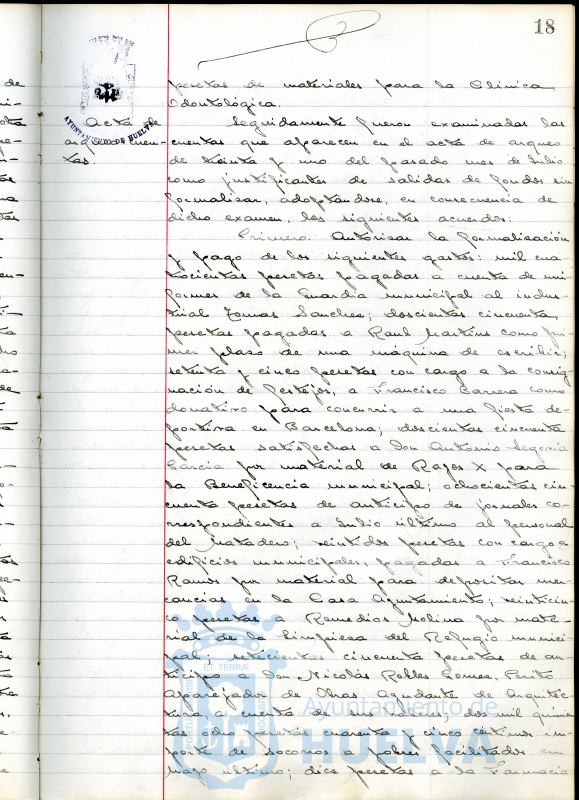 18
pesetas de materiales para la Clínica
Odontológica.
Acta de
arqueo cuen-
tas
AYUNTAMIENTO DE HUELVA
Seguidamente fueron examinadas las
cuentas que aparecen en el acta de arqueo
de treinta y uno del pasado mes de Julio
como justificantes de salidas de fondos sin
formalizar, adoptándose, en consecuencia de
dicho examen, los siguientes acuerdos:
Primero. Autorizar la formalización
y pago de los siguientes gastos: mil cua
trocientas pesetas pagadas a cuenta de uni
formes de la Guardia municipal al indus-
trial Tomas Sanchez; doscientas cincuenta
pesetas pagadas a Raul Martins como pri
mer plazo de una máquina de escribir;
setenta y cinco pesetas con cargo a la consig
nación de festejos, a Francisco Barrera como
donativo para concurrir a una fiesta de-
portiva en Barcelona; doscientas cincuenta
pesetas satisfechas a Don Antonio Segovia
García por material de Rayos X para
la Beneficencia municipal; ochocientas cin
cuenta pesetas de anticipo de jornales co-
rrespondientes a Julio último al personal
del Matadero; veintidos pesetas con cargo a
edificios municipales, pagadas a Francisco
Ramos por material para depositar mer
cancías en la Casa Ayuntamiento; veinticin
co pesetas a Remedios Molina por mate-
rial de la limpieza del Refugio munici-
pal; setecientas cincuenta pesetas de an-
ticipo a Don Nicolás Robles Gomez, Perito
Aparejador de Obras, Ayudante de Arquitec-
tura, a cuenta de sus haberes; dos mil quinien
tas ocho pesetas cuarenta y cinco céntimos im-
porte de socorros a pobres facilitados en
mayo último; diez pesetas a la Farmacia
Ayuntamiento de
HUELVA